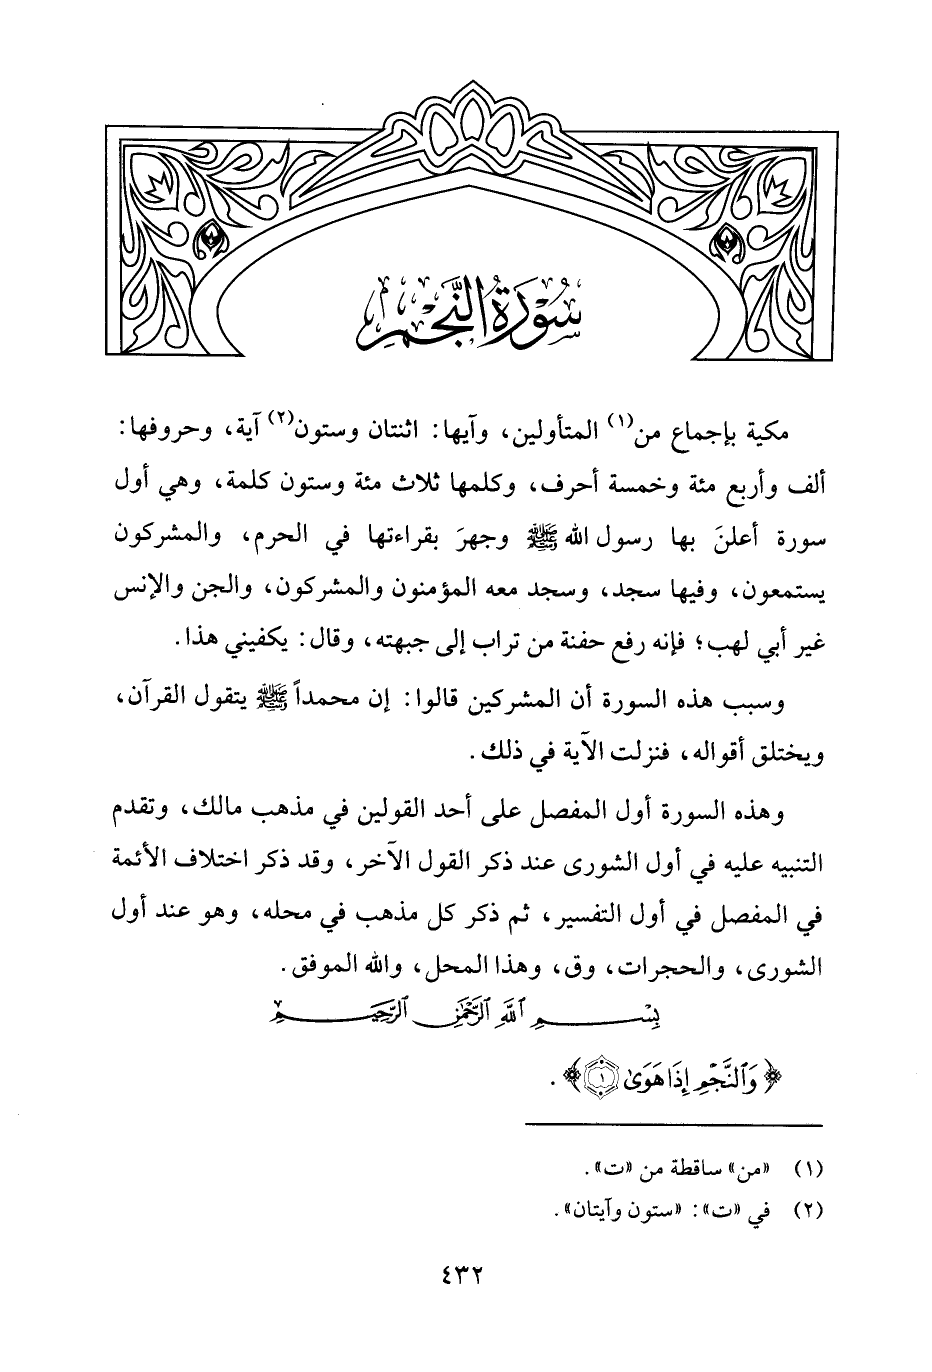 سُورَةُ النَّجْمِ
مكية بإجماع من(١) المتأولين، وآيها: اثنتان وستون(٢) آية، وحروفها:
ألف وأربع مئة وخمسة أحرف، وكلمها ثلاث مئة وستون كلمة، وهي أول
سورة أعلنَ بها رسول الله ﷺ وجهرَ بقراءتها في الحرم، والمشركون
يستمعون، وفيها سجد، وسجد معه المؤمنون والمشركون، والجن والإنس
غير أبي لهب؛ فإنه رفع حفنة من تراب إلى جبهته، وقال: يكفيني هذا.
وسبب هذه السورة أن المشركين قالوا: إن محمداً ﷺ يتقول القرآن،
ويختلق أقواله، فنزلت الآية في ذلك.
وهذه السورة أول المفصل على أحد القولين في مذهب مالك، وتقدم
التنبيه عليه في أول الشورى عند ذكر القول الآخر، وقد ذكر اختلاف الأئمة
في المفصل في أول التفسير، ثم ذكر كل مذهب في محله، وهو عند أول
الشورى، والحجرات، وق، وهذا المحل، والله الموفق.
بِسْمِ ٱللَّهِ ٱلرَّحْمَٰنِ ٱلرَّحِيمِ
﴿وَٱلنَّجْمِ إِذَا هَوَىٰ ١﴾.
(١) «من» ساقطة من «ت».
(٢) في «ت»: «ستون وآيتان».
٤٣٢